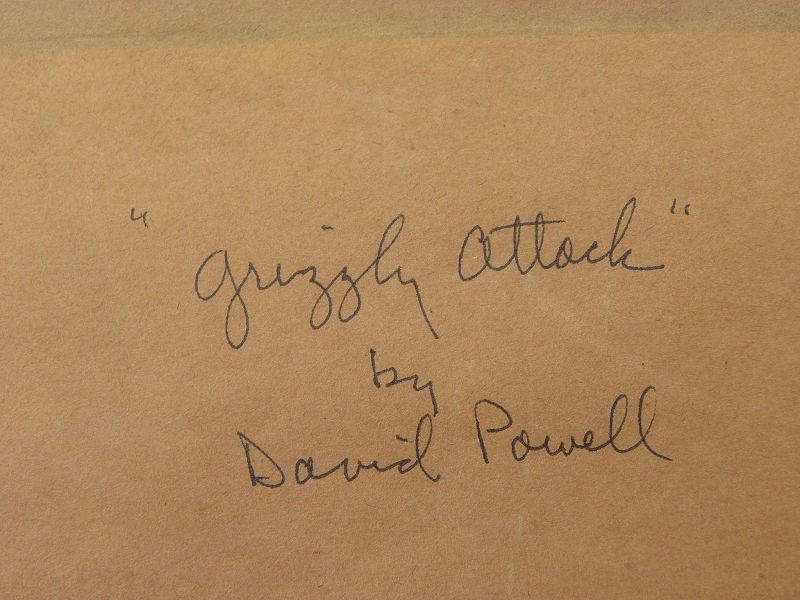 "Grizzly Attack"
by
David Powell